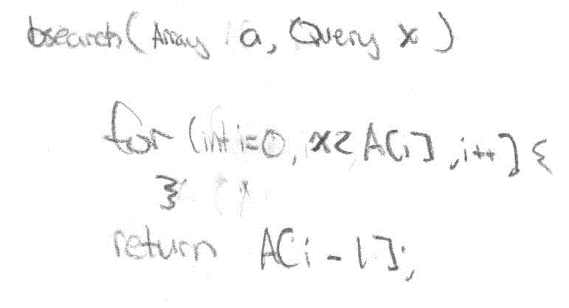 bsearch( Array a, Query x )
for (int i=0, x≥A[i], i++] {
}
return A[i-1];